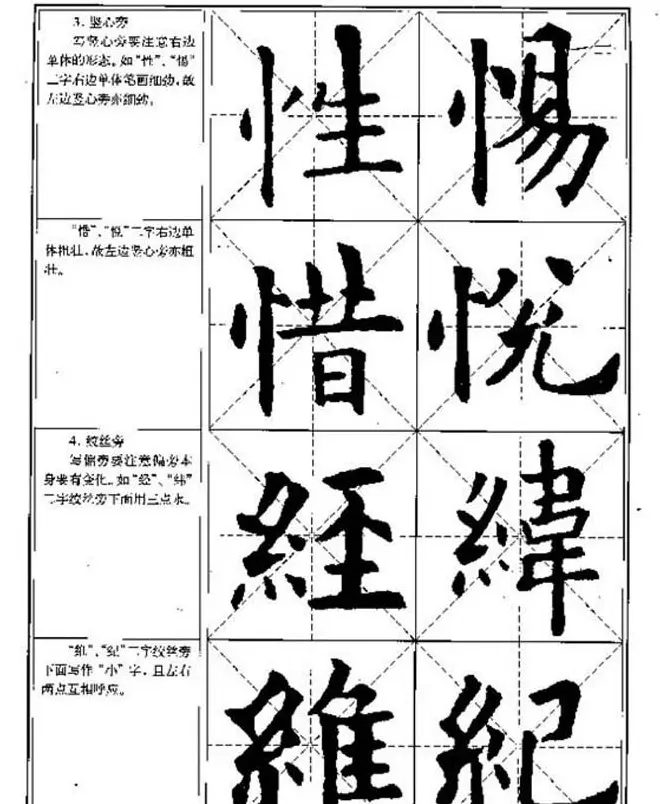 3. 竖心旁
写竖心旁要注意右边
单体的形态。如“性”、“惕”
二字右边单体笔画细劲，故
左边竖心旁亦细劲。
性 惕
“惜”、“悦”二字右边单
体粗壮，故左边竖心旁亦粗
壮。
惜 悦
4. 绞丝旁
写偏旁要注意偏旁本
身要有变化。如“经”、“纬”
二字绞丝旁下面用三点水。
經 緯
“维”、“纪”二字绞丝旁
下面写作“小”字，且左右
两点互相呼应。
維 紀